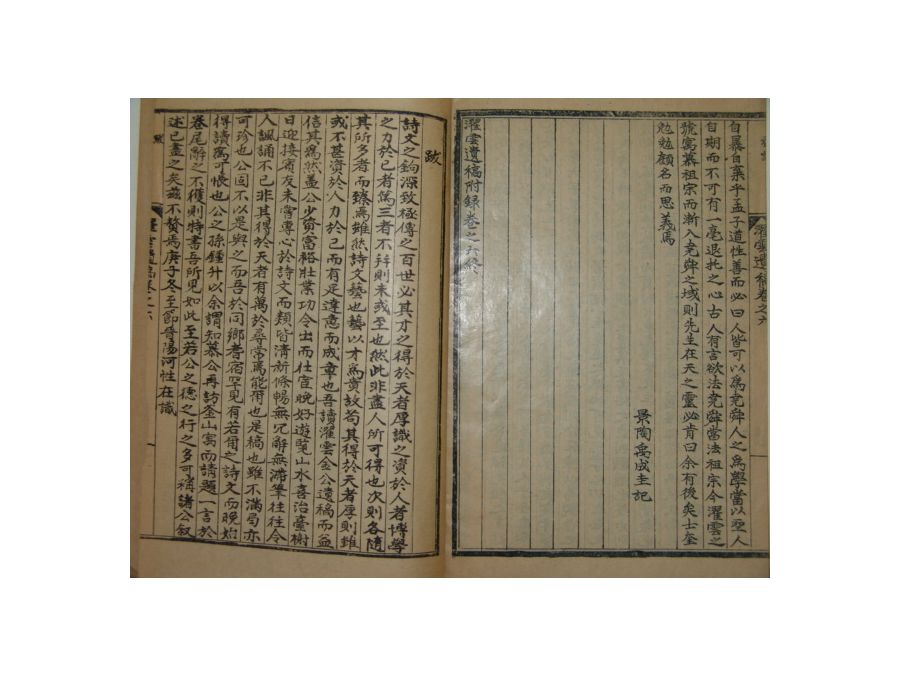 自暴自棄乎孟子道性善而必曰人皆可以爲堯舜人之爲學當以聖人
自期而不可有一毫退托之心古人有言欲法堯舜當法祖宗今濯雲之
號寓慕祖宗而漸入堯舜之域則先生在天之靈必肯曰余有後矣士奎
勉勉顧名而思義焉
景陶禹成圭記
濯雲遺稿附錄卷之六終
濯雲遺稿卷之六
跋
詩文之鉤深致極傳之百世必其才之得於天者厚識之資於人者博學
之力於己者篤三者不幷則未或至也然此非盡人所可得也次則各隨
其所多者而臻焉雖然詩文藝也藝以才爲賁故苟其得於天者厚則雖
或不甚資於人力於己而有足達意而成章也吾讀濯雲金公遺稿而益
信其爲然盖公少資富裕壯業功令出而仕宦晩好遊覽山水喜治臺榭
日迎接賓友未嘗專心於詩文而類皆淸新條暢無冗辭無滯筆往往令
人諷誦不已非其得於天者有萬於尋常爲能爾也是稿也雖不滿局亦
可珍也公固不以是與之而吾於同鄕耆宿罕見有若爾之詩文而晩始
得讀爲可恨也公之孫鍾升以余謂知慕公再訪釜山寓而請題一言於
卷尾辭之不獲則特書吾所見如此至若公之德之行之多可稱諸公叙
述已盡之矣玆不贅焉庚子冬至節晉陽河性在識
跋
濯雲遺稿卷之六